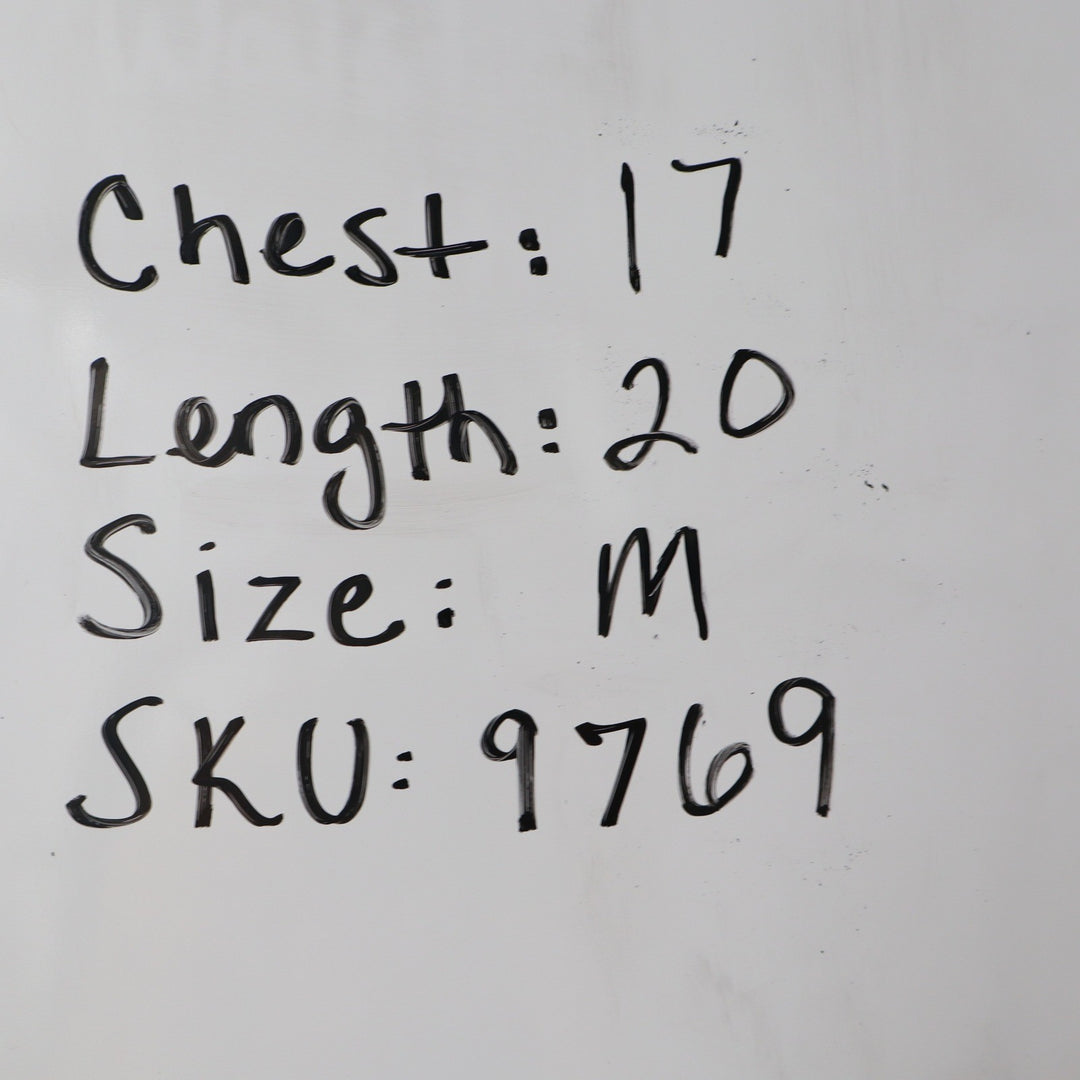 Chest: 17
Length: 20
Size: M
SKU: 9769